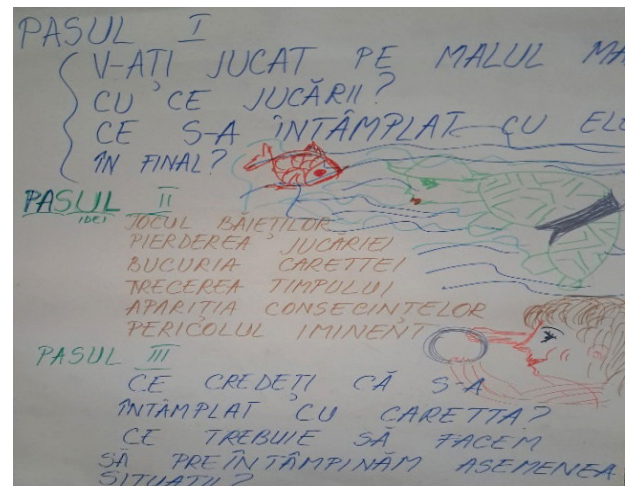 PASUL I
V-AȚI JUCAT PE MALUL
CU CE JUCĂRII?
CE S-A ÎNTÂMPLAT CU
ÎN FINAL?
PASUL II
IDEI
JOCUL BĂIEȚILOR
PIERDEREA JUCARIEI
BUCURIA CARETTEI
TRECEREA TIMPULUI
APARIȚIA CONSECINȚELOR
PERICOLUL IMINENT
PASUL III
CE CREDEȚI CĂ S-A
ÎNTÂMPLAT CU CARETTA?
CE TREBUIE SĂ FACEM
SĂ PREÎNTÂMPINĂM ASEMENEA
SITUAȚII?